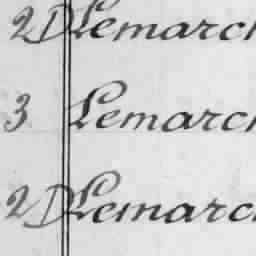 2D Lemarch
3 Lemarch
2D Lemarch